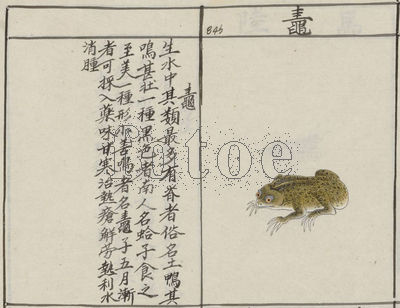 鼃
845
鼃
生水中其類最多有脊者俗名土鴨其
鳴甚壯一種黑色者南人名蛤子食之
至美一種形小善鳴者名鼃子五月漸
者可採入藥味甘寒治熱瘡解勞熱利水
消腫